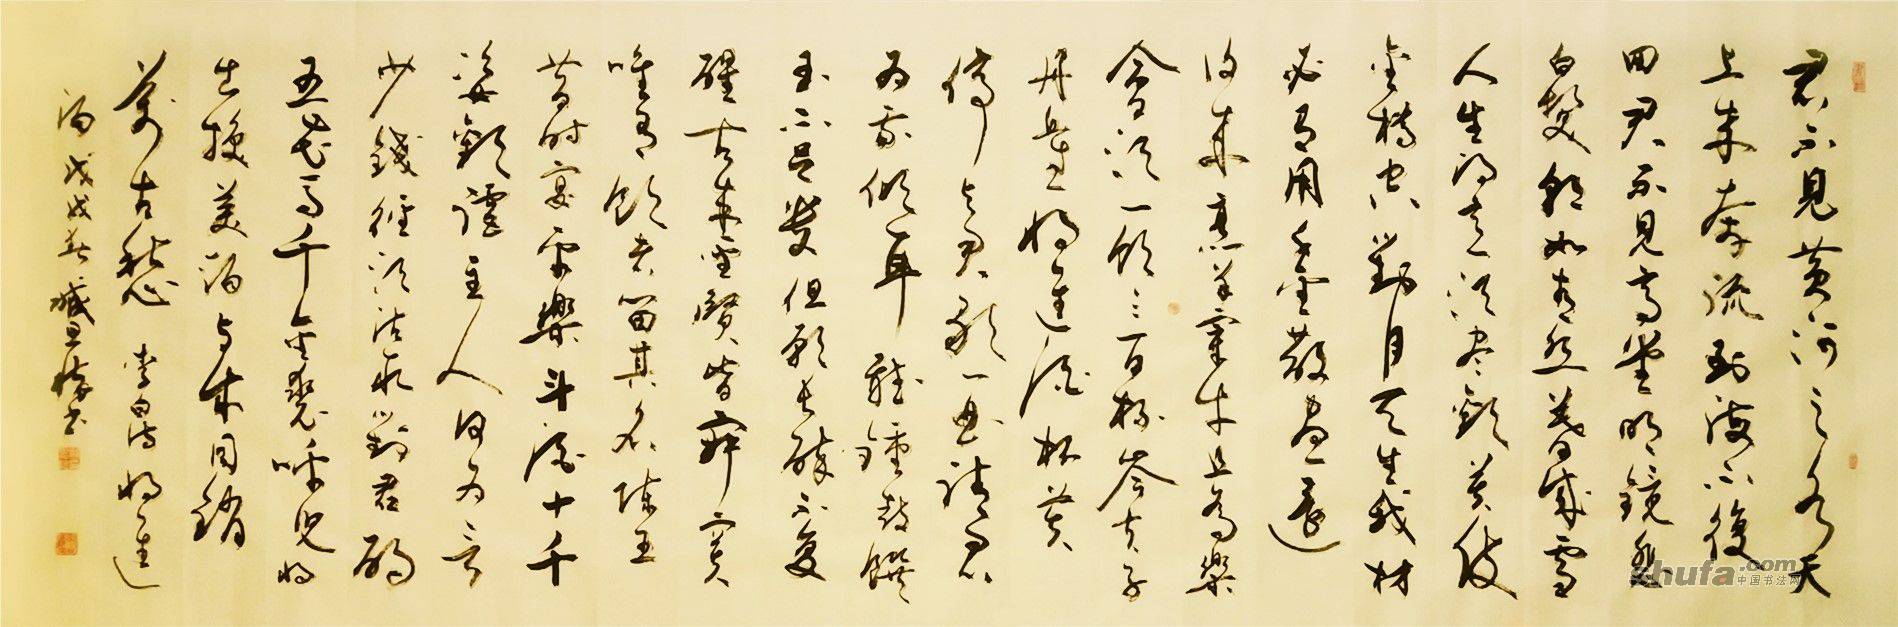 君不見黄河之水天
上来奔流到海不復
回君不見高堂明鏡悲
白髮朝如青丝暮成雪
人生得意須尽歡莫使
金樽空對月天生我材
必有用千金散盡還
復来烹羊宰牛且為樂
會須一飲三百杯岑夫子
丹丘生将進酒杯莫
停与君歌一曲請君
为我倾耳聴鐘鼓饌
玉不足貴但願長醉不复
醒古来聖賢皆寂寞
唯有飲者留其名陳王
昔時宴平樂斗酒十千
恣歡謔主人何为言
少錢徑須沽取對君酌
五花马千金裘呼児将
出换美酒与尔同銷
萬古愁 李白诗将進
酒 戊戌春臧书
shufa.com
中国书法网